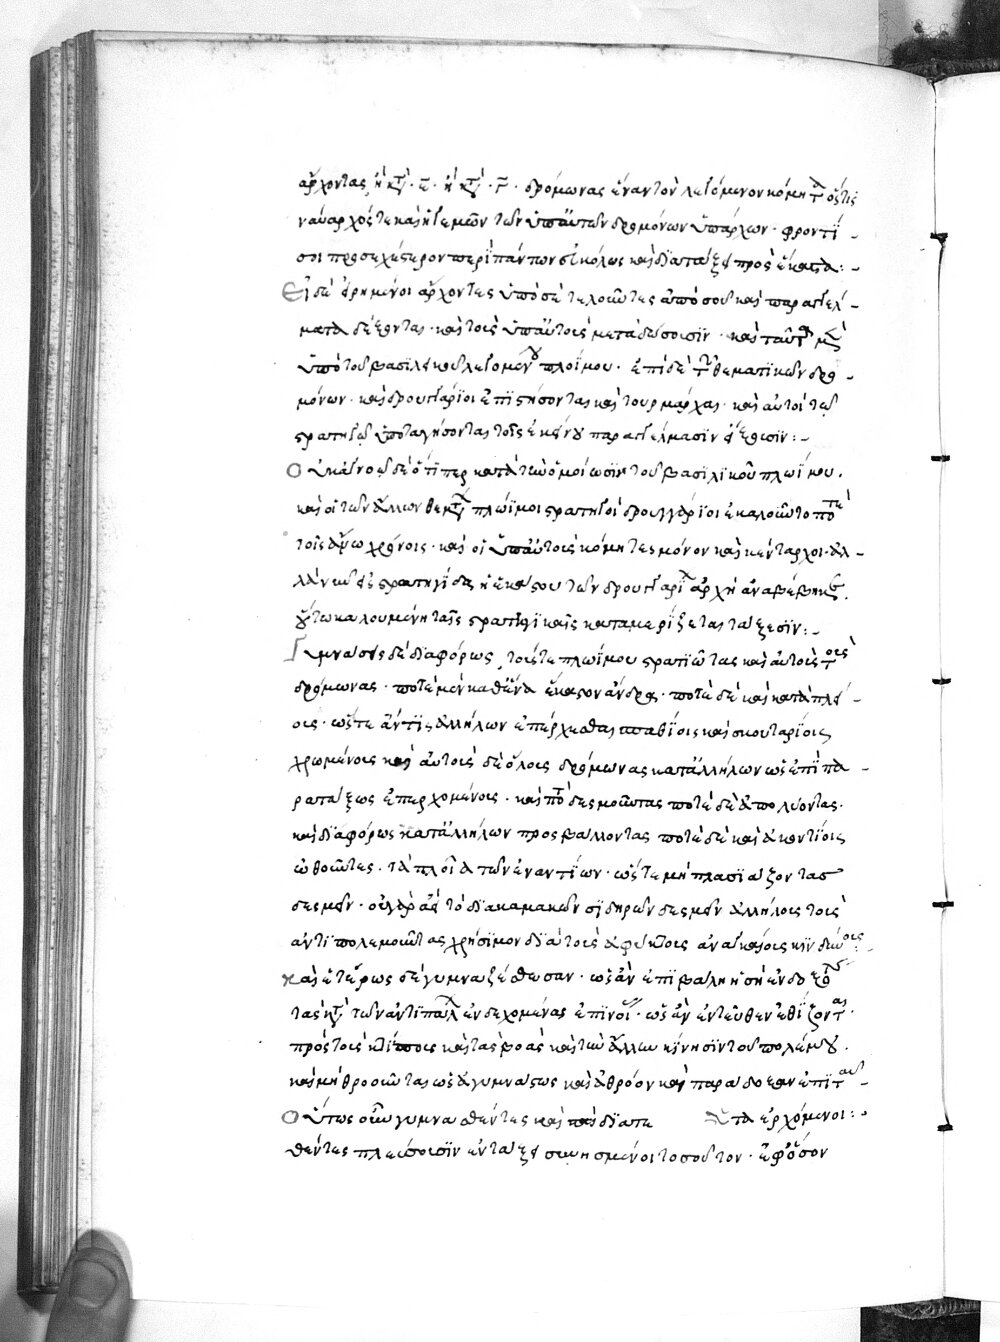 ἄρχοντας ἢ κατὰ ε̄ ἢ κατὰ γ̄ δρόμωνας ἕνα τὸν λεγόμενον κόμητα ὅστις
ναύαρχός τε καὶ ἡγεμὼν τῶν ὑπ' αὐτὸν δρομόνων ὑπάρχων φροντί
σοι προσεχέστερον περὶ πάντων εὐκόλως καὶ διατάξει πρὸς ἕκαστα:
Οἱ δὲ εἰρημένοι ἄρχοντες ὑπὸ σὲ τελοῦντες ἀπὸ σοῦ καὶ παραγγέλ
ματα δέξονται καὶ τοῖς ὑπ' αὐτοὺς μεταδώσουσιν καὶ ταῦτα μὲν
ὑπὸ τοῦ βασιλικοῦ λεγομένου πλοΐμου ἐπὶ δὲ τῶν θεματικῶν δρο
μόνων καὶ δρουγγάριοι ἐπιστήσονται καὶ τουρμάρχαι καὶ αὐτοὶ τῷ
στρατηγῷ ὑποταγήσονται τοῖς ἐκείνου παραγγέλμασιν εἴξουσιν:
Οὐκ ἀγνοῶ δὲ ὅτιπερ κατὰ τὴν ὁμοίωσιν τοῦ βασιλικοῦ πλωΐμου
καὶ οἱ τῶν ἄλλων θεμάτων πλώϊμοι στρατηγοὶ δρουγγάριοι ἐκαλοῦντό ποτε
τοῖς ἄνω χρόνοις καὶ οἱ ὑπ' αὐτοὺς κόμητες μόνον καὶ κένταρχοι ἀλ
λὰ νῦν εἰς στρατηγίδα ἡ ἑκάστου τῶν δρουγγαρίων ἀρχὴ ἀναβέβηκε
οὕτω καλουμένη ταῖς στρατηγικαῖς καταμερίζεται τάξεσιν:
Γυμνάσεις δὲ διαφόρως τούς τε πλωΐμου στρατιώτας καὶ αὐτοὺς τοὺς
δρόμωνας ποτὲ μὲν καθ' ἕνα ἕκαστον ἄνδρα ποτὲ δὲ καὶ κατὰ πλεί
ους ὥστε ἀντὶ ἀλλήλων ἐπέρχεσθαι σπαθίοις καὶ σκουταρίοις
χρωμένους καὶ αὐτοὺς δὲ ὅλους δρόμωνας κατ' ἀλλήλων ὡς ἐπὶ πα
ρατάξεως ἐπερχομένους καὶ ποτὲ δεσμοῦντας ποτὲ δὲ ἀπολύοντας
καὶ διαφόρως κατ' ἀλλήλων προσβάλλοντας ποτὲ δὲ καὶ ἀκοντίοις
ὠθοῦντες τὰ πλοῖα τῶν ἐναντίων ὥστε μὴ πλησιάζοντας
δεσμεῖν οὐ γὰρ ἀεὶ τὸ διὰ καμάκων σιδηρῶν δεσμεῖν ἀλλήλοις τοὺς
ἀντιπολεμοῦντας χρήσιμον διὰ τοὺς ἀφύκτους ἀναγκαίους κινδύνους:
Καὶ ἑτέρως δὲ γυμναζέσθωσαν ὡς ἂν ἐπιβάλῃ ἡ σὴ ἐνδοξότης
τὰς κατὰ τῶν ἀντιπάλων ἐνδεχομένας ἐπινοίας ὡς ἂν ἐντεῦθεν ἐθίζονται
πρὸς τοὺς κτύπους καὶ τὰς βοὰς καὶ τὴν ἄλλην κίνησιν τοῦ πολέμου
καὶ μὴ θροοῦνται ὡς ἀγυμνάστως καὶ ἀθρόον καὶ παράδοξαν ἐπὶ ταῦ
Οὕτως οὖν γυμνασθέντες καὶ διατε τα ἐρχόμενοι:
θέντες πλεύσουσιν ἐν τάξει συνησμένοι τοσοῦτον ἐφ' ὅσον